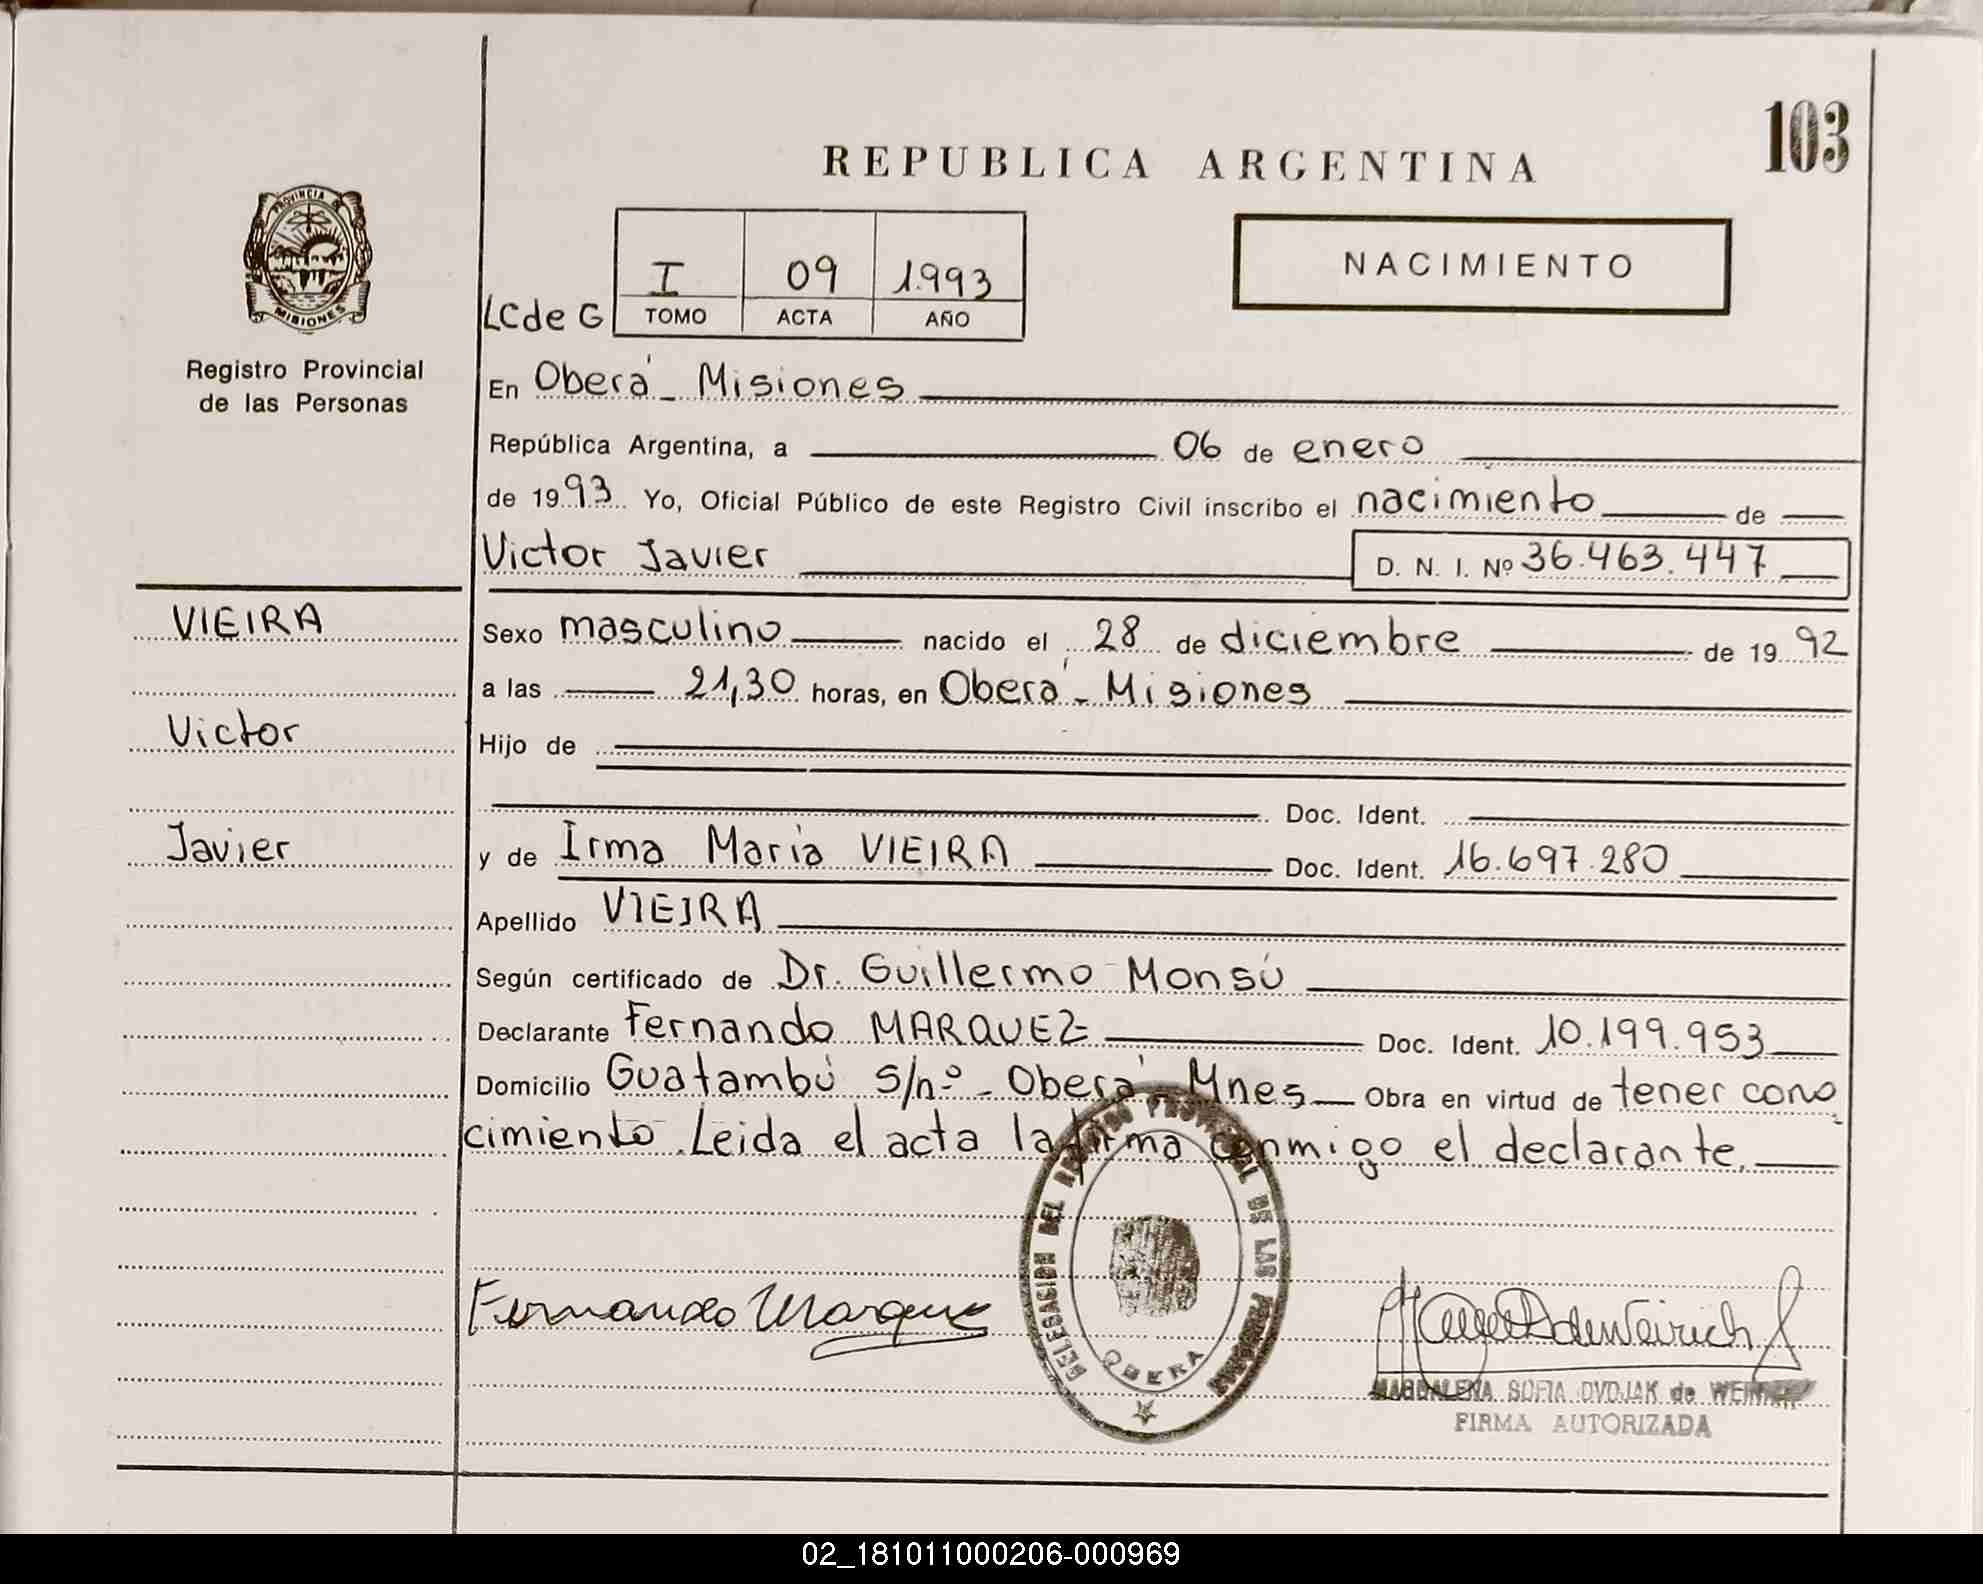 103
REPUBLICA ARGENTINA
PROVINCIA DE
MISIONES
NACIMIENTO
I 09 1.993
LCde G TOMO ACTA AÑO
Registro Provincial
de las Personas
En Oberá - Misiones
República Argentina, a 06 de enero
de 1993 Yo, Oficial Público de este Registro Civil inscribo el nacimiento de
Victor Javier D. N. I. Nº 36.463.447
VIEIRA
Sexo masculino nacido el 28 de diciembre de 1992
a las 21,30 horas, en Oberá - Misiones
Victor
Hijo de
Doc. Ident.
Javier
y de Irma Maria VIEIRA Doc. Ident. 16.697.280
Apellido VIEIRA
Según certificado de Dr. Guillermo Monsú
Declarante Fernando MARQUEZ Doc. Ident. 10.199.953
Domicilio Guatambú s/nº - Oberá Mnes Obra en virtud de tener cono
cimiento. Leida el acta la firma conmigo el declarante.
DELEGACION DEL REGISTRO PROVINCIAL DE LAS PERSONAS
OBERA
Fernando Marquez
MAGDALENA SOFIA DVOJAK de WEIRICH
FIRMA AUTORIZADA
02_181011000206-000969